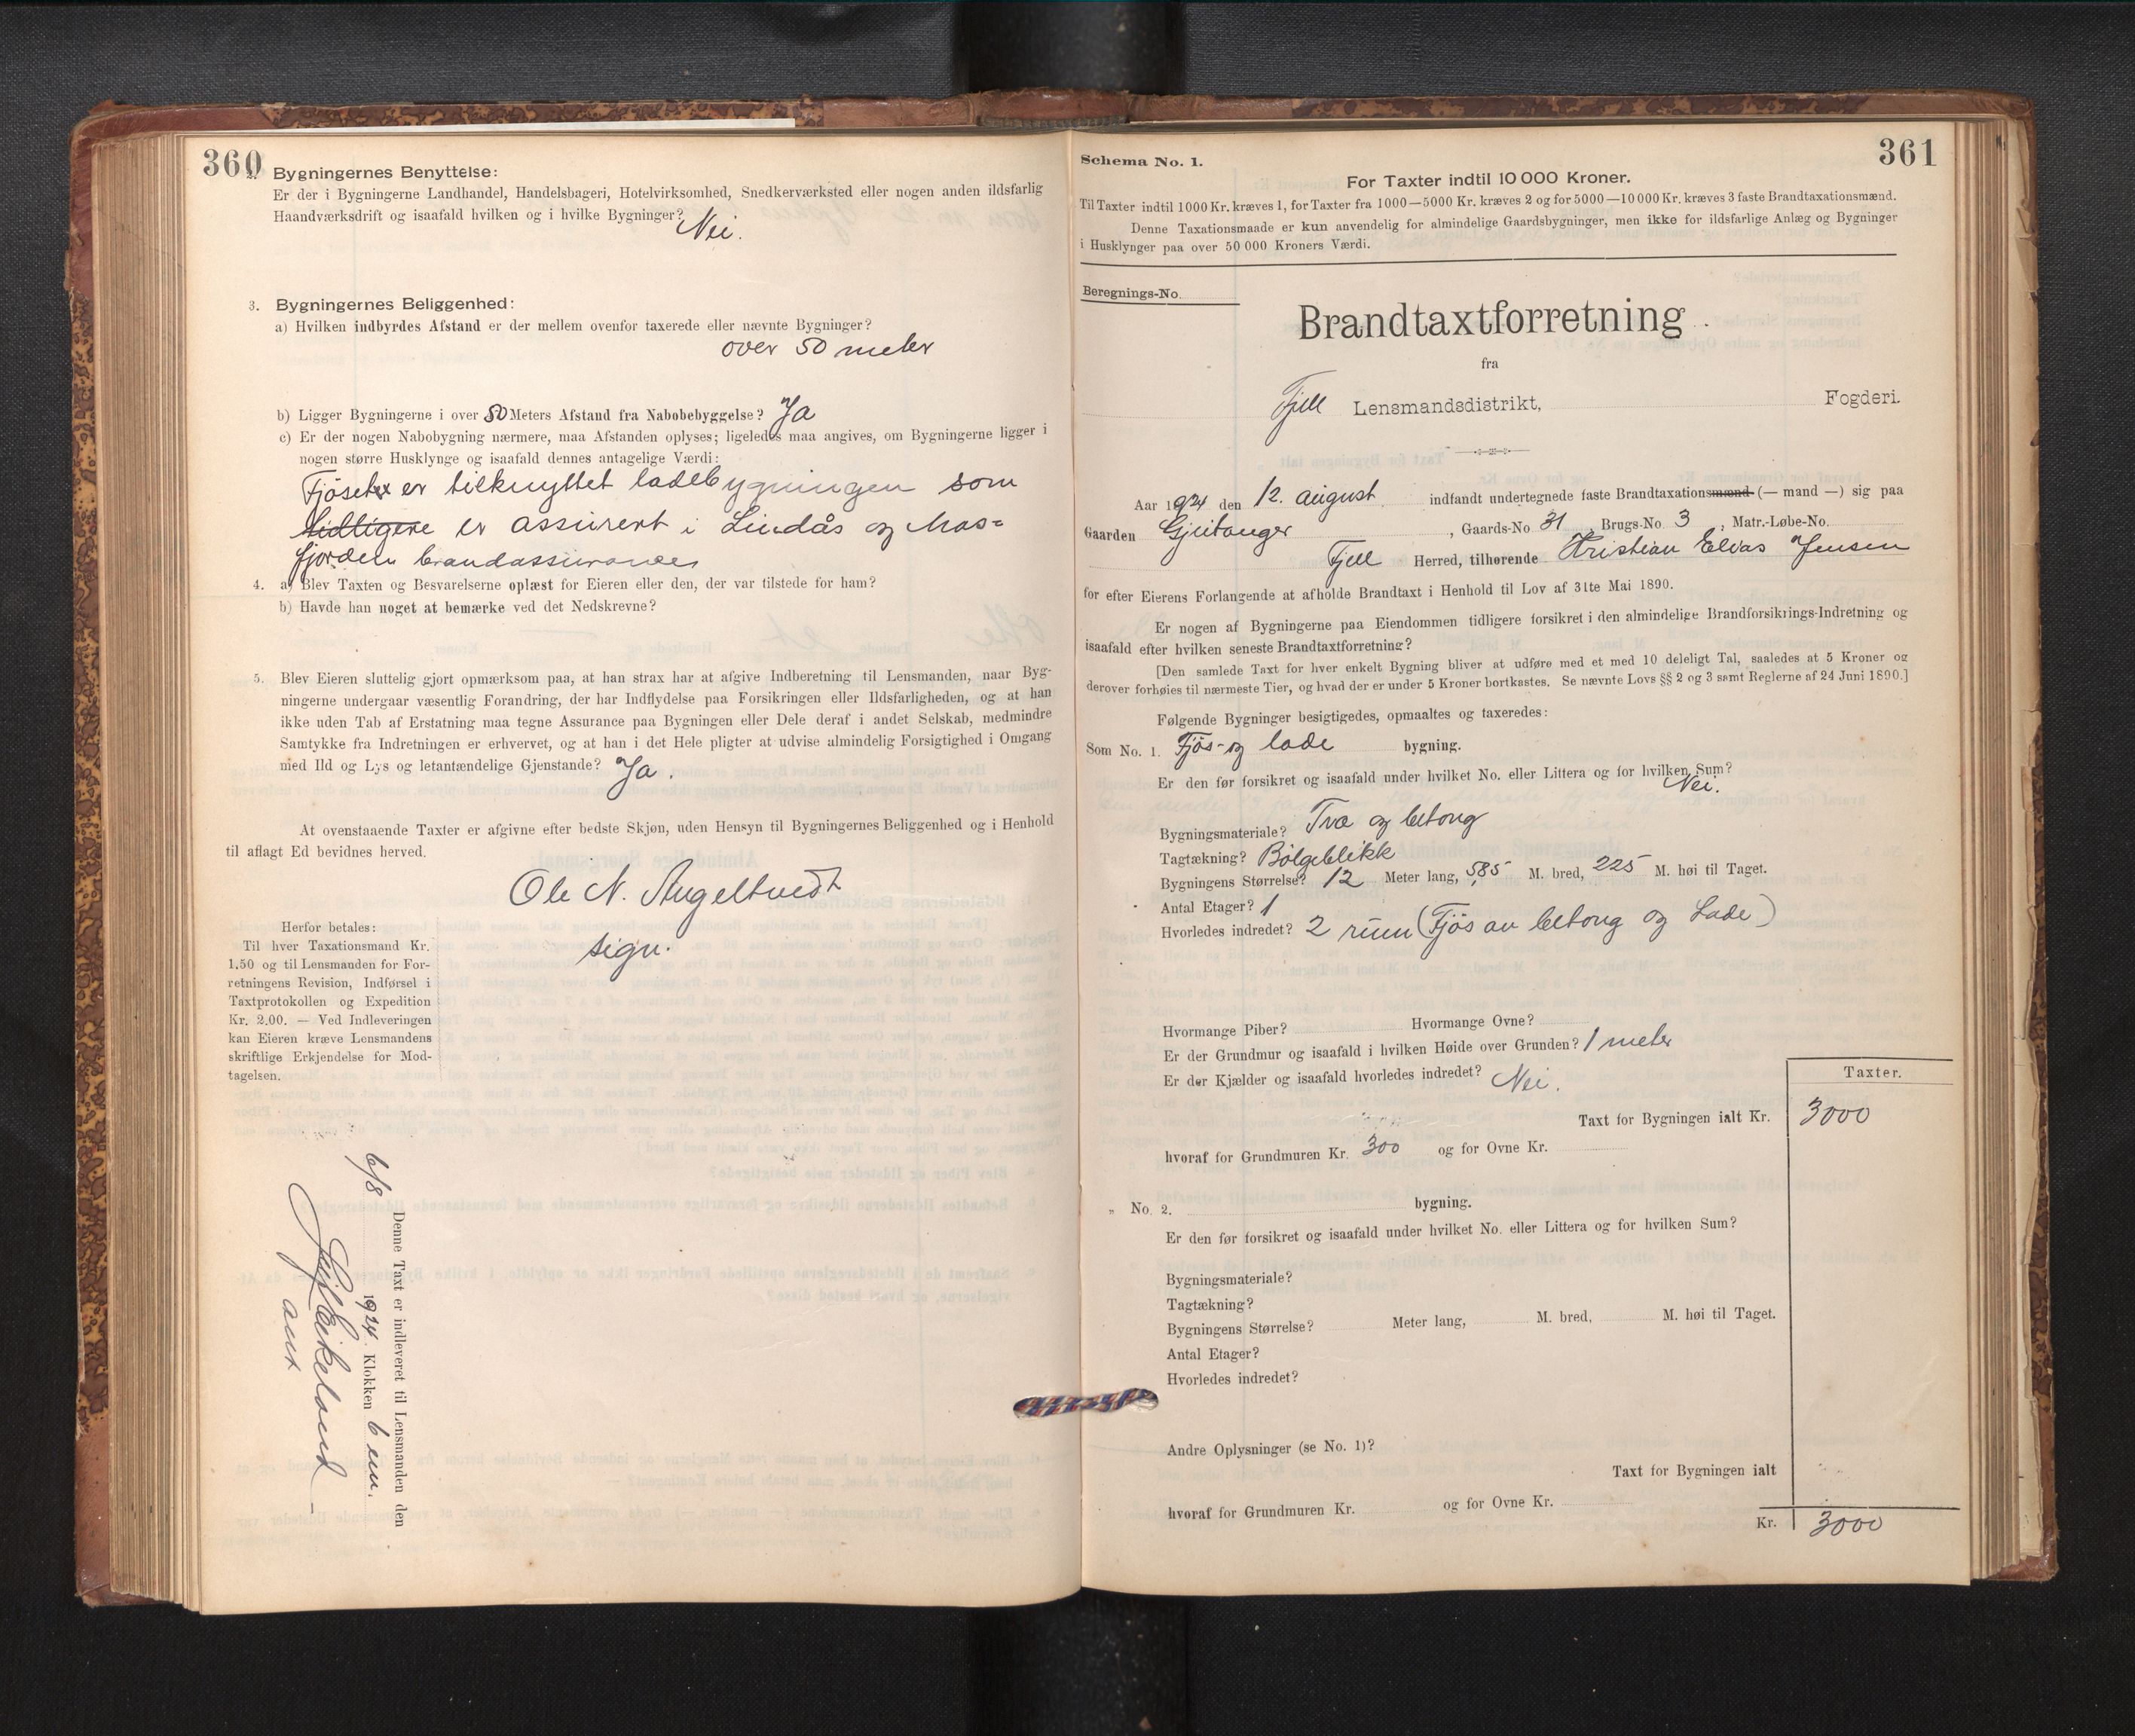 360
2. Bygningernes Benyttelse:
Er der i Bygningerne Landhandel, Handelsbageri, Hotelvirksomhed, Snedkerværksted eller nogen anden ildsfarlig
Haandværksdrift og isaafald hvilken og i hvilke Bygninger? Nei.
3. Bygningernes Beliggenhed:
a) Hvilken indbyrdes Afstand er der mellem ovenfor taxerede eller nævnte Bygninger?
over 50 meter
b) Ligger Bygningerne i over 50 Meters Afstand fra Nabobebyggelse? Ja
c) Er der nogen Nabobygning nærmere, maa Afstanden oplyses; ligeledes maa angives, om Bygningerne ligger i
nogen større Husklynge og isaafald dennes antagelige Værdi:
Fjöset er tilknyttet ladebygningen som
tidligere er assurert i Lindås og Mas=
fjorden brandassurance
4. a) Blev Taxten og Besvarelserne oplæst for Eieren eller den, der var tilstede for ham?
b) Havde han noget at bemærke ved det Nedskrevne?
5. Blev Eieren sluttelig gjort opmærksom paa, at han strax har at afgive Indberetning til Lensmanden, naar Byg-
ningerne undergaar væsentlig Forandring, der har Indflydelse paa Forsikringen eller Ildsfarligheden, og at han
ikke uden Tab af Erstatning maa tegne Assurance paa Bygningen eller Dele deraf i andet Selskab, medmindre
Samtykke fra Indretningen er erhvervet, og at han i det Hele pligter at udvise almindelig Forsigtighed i Omgang
med Ild og Lys og letantændelige Gjenstande? Ja.
At ovenstaaende Taxter er afgivne efter bedste Skjøn, uden Hensyn til Bygningernes Beliggenhed og i Henhold
til aflagt Ed bevidnes herved.
Ole N. Angeltvedt
sign.
Herfor betales:
Til hver Taxationsmand Kr.
1.50 og til Lensmanden for For-
retningens Revision, Indførsel i
Taxtprotokollen og Expedition
Kr. 2.00. — Ved Indleveringen
kan Eieren kræve Lensmandens
skriftlige Erkjendelse for Mod-
tagelsen.
Denne Taxt er indleveret til Lensmanden den
6/8 1924. Klokken 6 em.
361
Schema No. 1.
For Taxter indtil 10 000 Kroner.
Til Taxter indtil 1000 Kr. kræves 1, for Taxter fra 1000—5000 Kr. kræves 2 og for 5000—10 000 Kr. kræves 3 faste Brandtaxationsmænd.
Denne Taxationsmaade er kun anvendelig for almindelige Gaardsbygninger, men ikke for ildsfarlige Anlæg og Bygninger
i Husklynger paa over 50 000 Kroners Værdi.
Beregnings-No.
Brandtaxtforretning
fra
Fjell Lensmandsdistrikt, Fogderi.
Aar 1924 den 12. august indfandt undertegnede faste Brandtaxationsmænd (— mand —) sig paa
Gaarden Gjeitanger, Gaards-No 31, Brugs-No 3, Matr.-Løbe-No.
Fjell Herred, tilhørende Kristian Elias Jensen
for efter Eierens Forlangende at afholde Brandtaxt i Henhold til Lov af 31te Mai 1890.
Er nogen af Bygningerne paa Eiendommen tidligere forsikret i den almindelige Brandforsikrings-Indretning og
isaafald efter hvilken seneste Brandtaxtforretning?
[Den samlede Taxt for hver enkelt Bygning bliver at udføre med et med 10 deleligt Tal, saaledes at 5 Kroner og
derover forhøies til nærmeste Tier, og hvad der er under 5 Kroner bortkastes. Se nævnte Lovs §§ 2 og 3 samt Reglerne af 24 Juni 1890.]
Følgende Bygninger besigtigedes, opmaaltes og taxeredes:
Som No. 1. Fjös- og lade bygning.
Er den før forsikret og isaafald under hvilket No. eller Littera og for hvilken Sum?
Nei.
Bygningsmateriale? Træ og betong
Tagtækning? Bölgeblikk
Bygningens Størrelse? 12 Meter lang, 5,85 M. bred, 225 M. høi til Taget.
Antal Etager? 1
Hvorledes indredet? 2 rum (Fjös av betong og Lade)
Hvormange Piber? Hvormange Ovne?
Er der Grundmur og isaafald i hvilken Høide over Grunden? 1 meter
Er der Kjælder og isaafald hvorledes indredet? Nei.
Taxter.
Taxt for Bygningen ialt Kr. 3000
hvoraf for Grundmuren Kr. 300 og for Ovne Kr.
„ No. 2. bygning.
Er den før forsikret og isaafald under hvilket No. eller Littera og for hvilken Sum?
Bygningsmateriale?
Tagtækning?
Bygningens Størrelse? Meter lang, M. bred, M. høi til Taget.
Antal Etager?
Hvorledes indredet?
Andre Oplysninger (se No. 1)?
Taxt for Bygningen ialt
hvoraf for Grundmuren Kr. og for Ovne Kr.
Kr. 3000